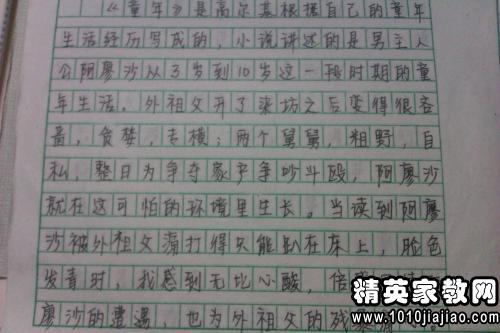 《童年》是高尔基根据自己的童年
生活经历写成的，小说讲述的是男主人
公阿廖沙从3岁到10岁这一段时期的童
年生活。外祖父开了染坊之后变得很吝
啬，贪婪，专横；两个舅舅，粗野，自
私，整日为争夺家产争吵斗殴，阿廖沙
就在这可怕的环境里生长。当读到阿廖
沙被外祖父毒打得只能趴在床上，脸色
发青时，我感到无比心酸，
廖沙的遭遇，也为外祖父的残
精英家教网
www.1010jiajiao.com